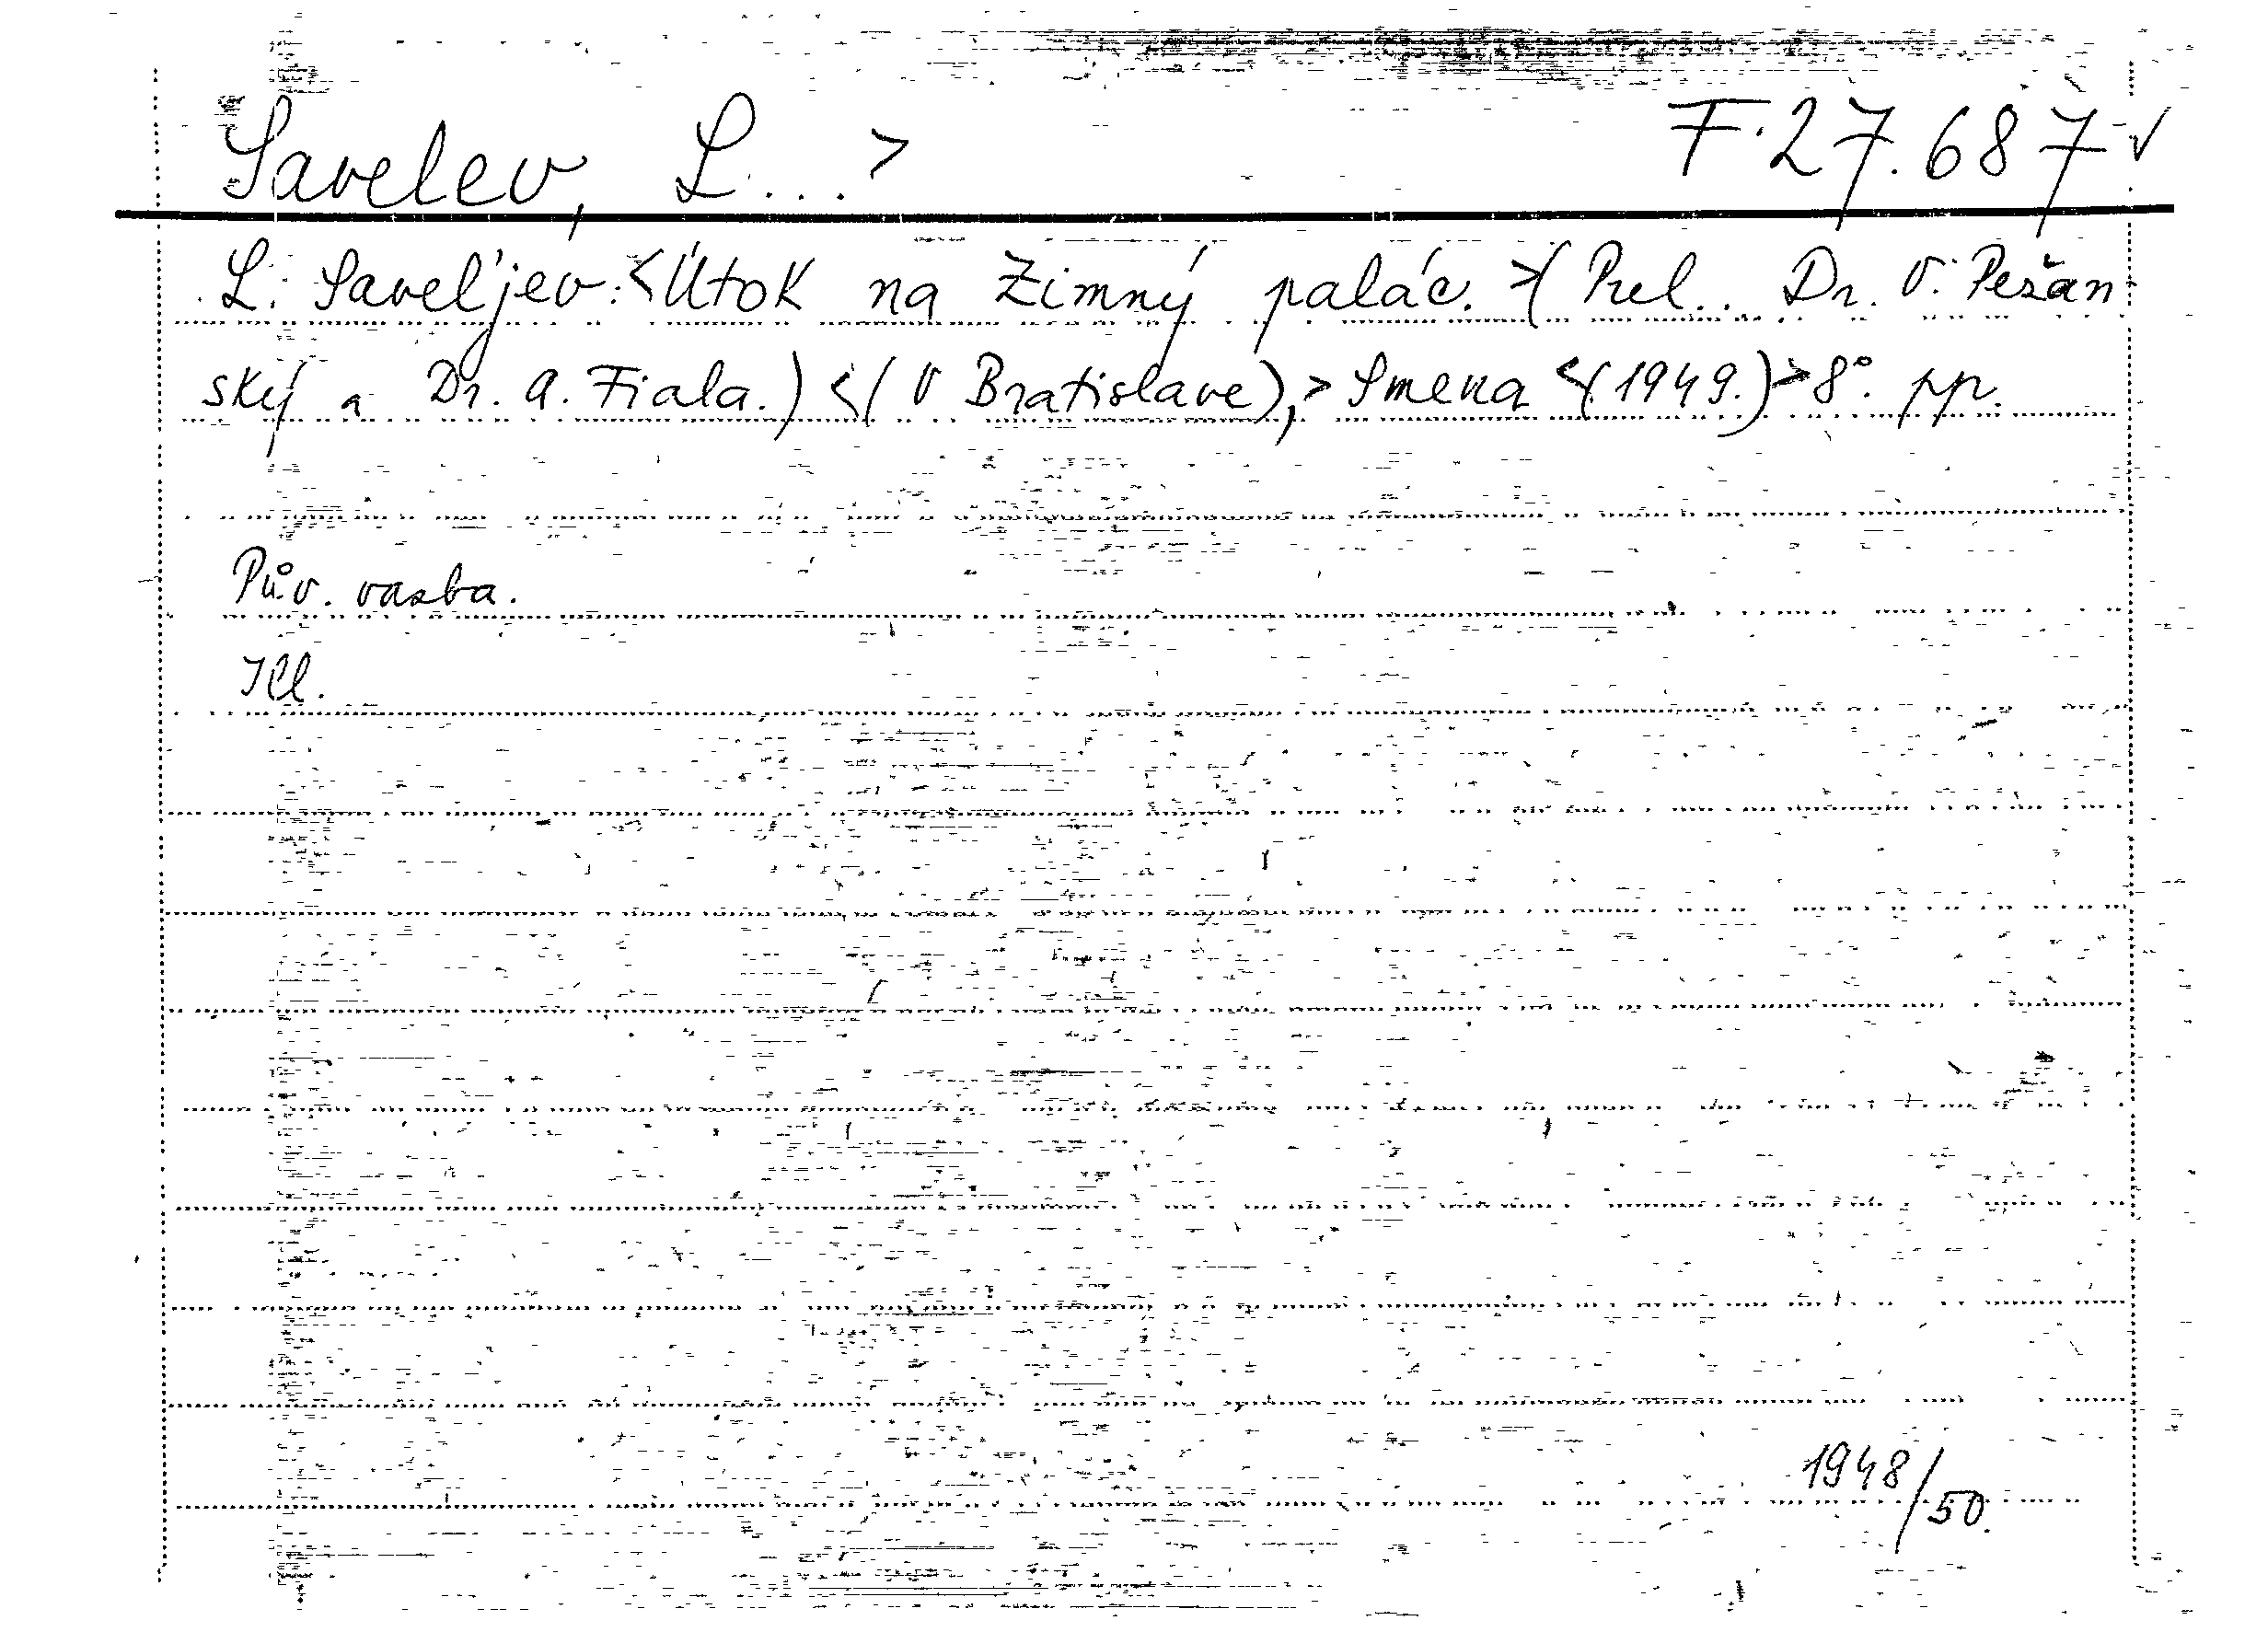 Savelev, L...> F 27.687 √
L. Saveljev: <Útok na Zimný palác.> (Prel.. Dr. V. Pežan-
ský a Dr. A. Fiala.) <(V Bratislave),> Smena <(1949.)> 8°. pp.
Pův. vazba.
Ill.
1948/50.